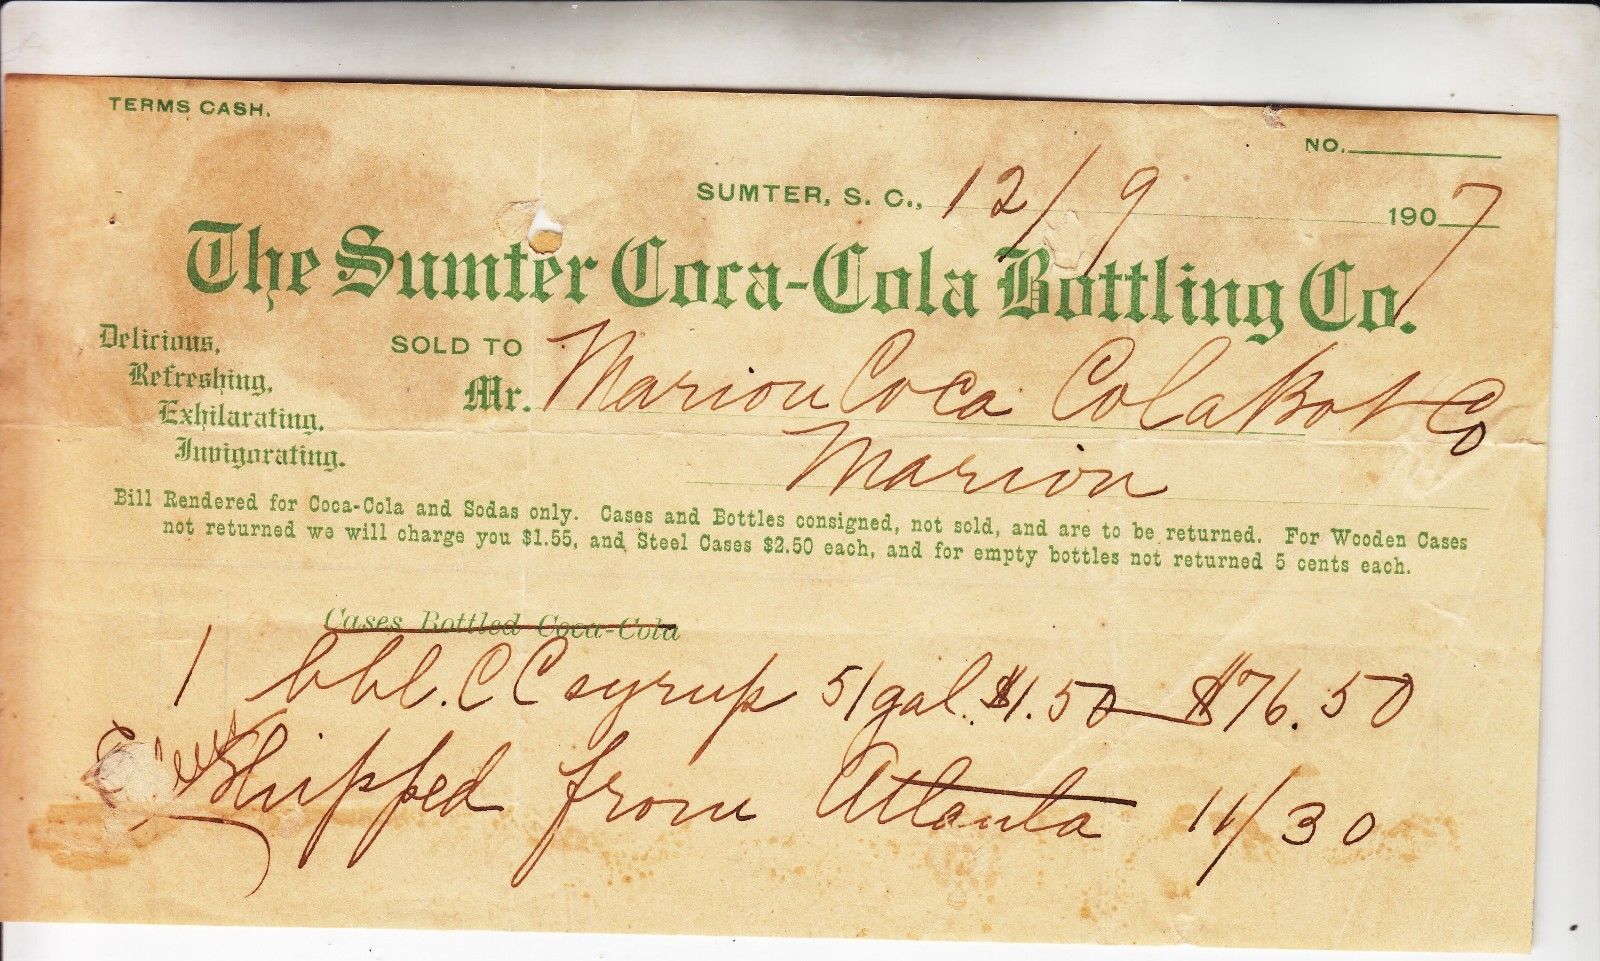 TERMS CASH.
NO.
SUMTER, S. C., 12/9 1907
The Sumter Coca-Cola Bottling Co.
Delicious,
Refreshing,
Exhilarating,
Invigorating.
SOLD TO
Mr. Marion Coca Cola Bot Co
Marion
Bill Rendered for Coca-Cola and Sodas only. Cases and Bottles consigned, not sold, and are to be returned. For Wooden Cases
not returned we will charge you $1.55, and Steel Cases $2.50 each, and for empty bottles not returned 5 cents each.
Cases Bottled Coca-Cola
1 bbl. CC syrup 51 gal. $1.50 $76.50
Shipped from Atlanta 11/30